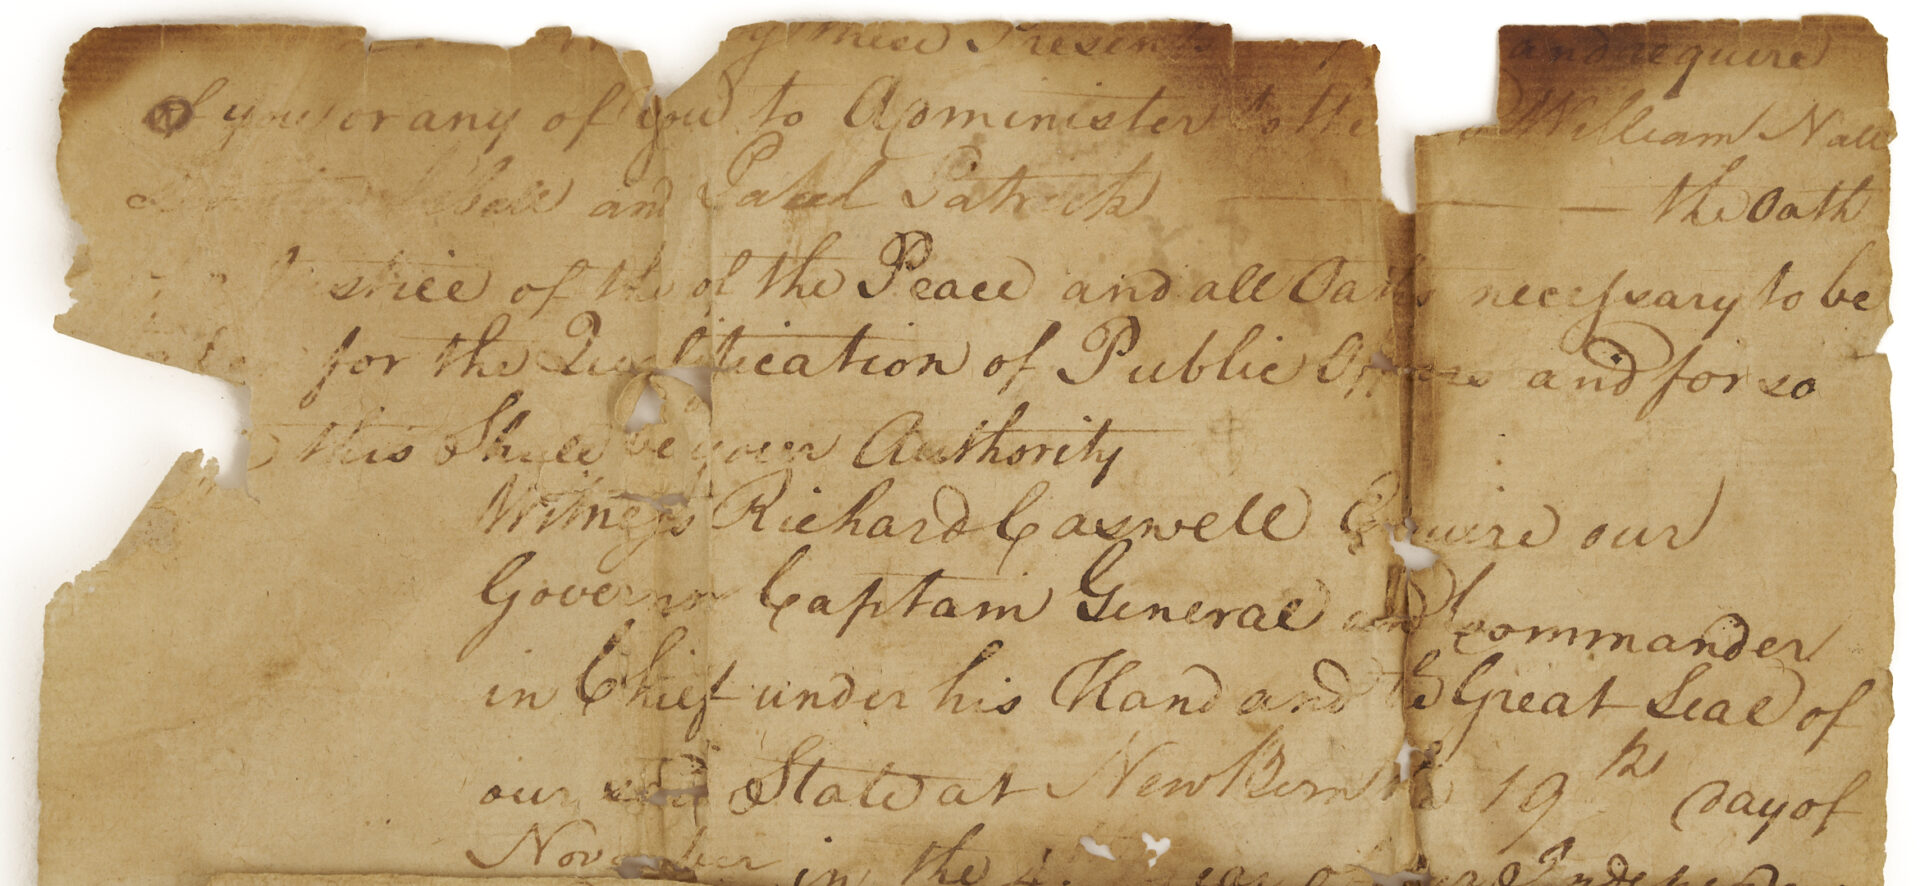 these Presents and require
of you or any of you to Administer to the William Nall
and Patrick the Oath
Justice of the of the Peace and all Oaths necessary to be
for the Qualification of Public Officers and for so
this Shall be your Authority
Witness Richard Caswell Esquire our
Governor Captain General and Commander
in Chief under his Hand and the Great Seal of
our said State at New Bern the 19th day of
November in the 4 year of our Independ